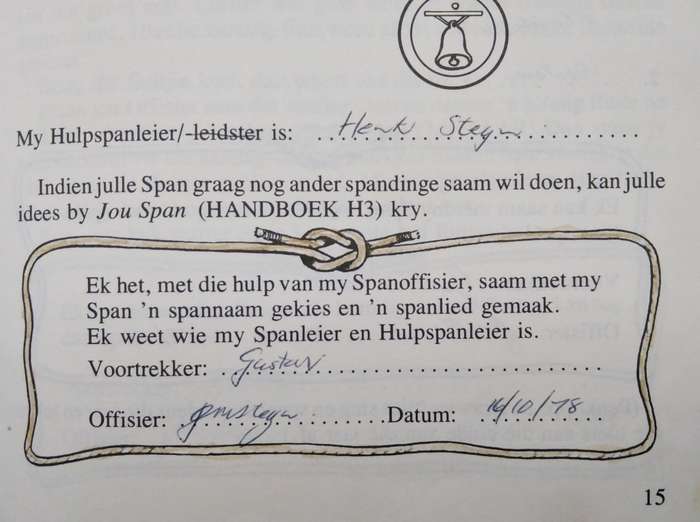 My Hulpspanleier/-leidster is: Henk Steyn
Indien julle Span graag nog ander spandinge saam wil doen, kan julle
idees by Jou Span (HANDBOEK H3) kry.
Ek het, met die hulp van my Spanoffisier, saam met my
Span 'n spannaam gekies en 'n spanlied gemaak.
Ek weet wie my Spanleier en Hulpspanleier is.
Voortrekker: Gustav
Offisier: Datum: 14/10/78
15